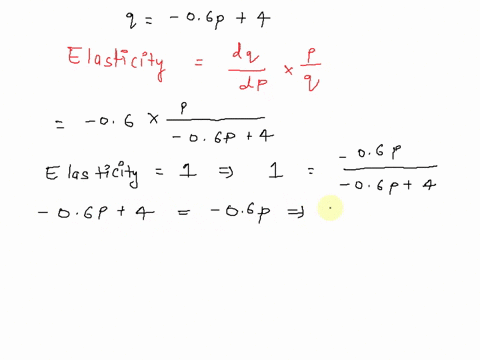 q = -0.6p + 4
Elasticity = dq/dp × p/q
= -0.6 × p/(-0.6p + 4)
Elasticity = 1 ⇒ 1 = -0.6p/(-0.6p + 4)
-0.6p + 4 = -0.6p ⇒